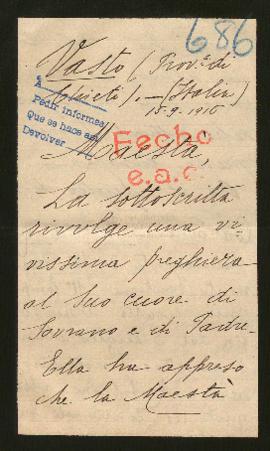 686
Vasto (Prov.ª di
Chieti). — (Italia)
15-9-1916
A
Pedir informes
Que se hace así
Devolver
Maestà,
Fecho
e.a.c
La sottoscritta
rivolge una vi-
vissima preghiera
al Suo cuore di
Sovrano e di Padre.
Ella ha appreso
che la Maestà